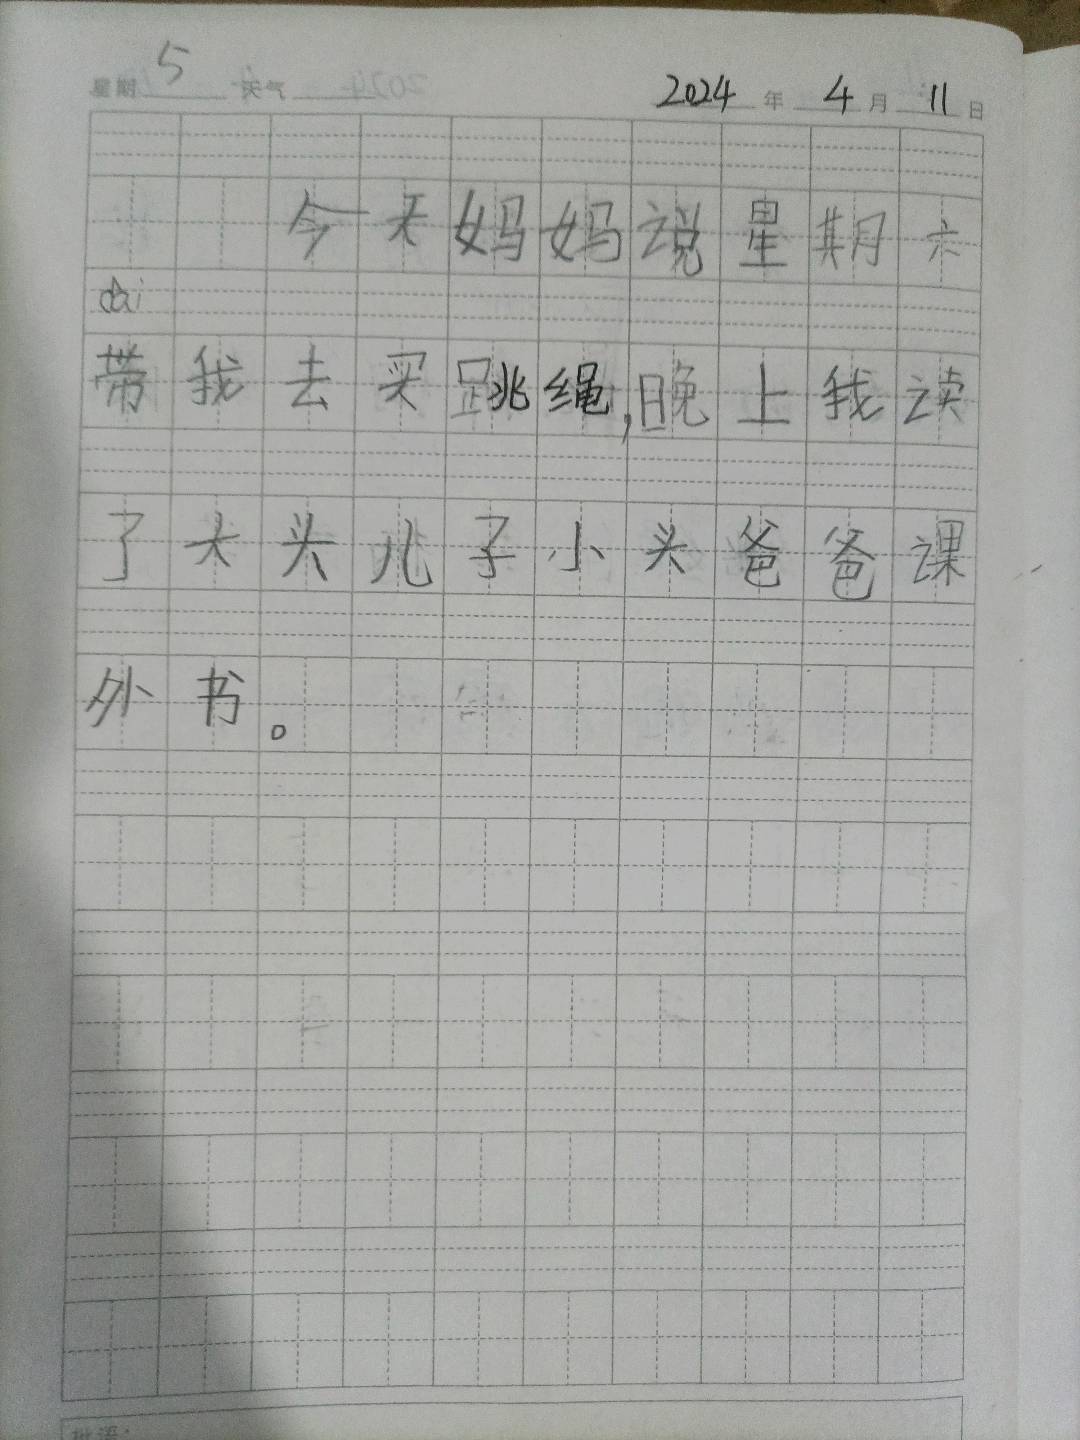 星期 5 天气 2024 年 4 月 11 日
今天妈妈说星期六
dai
带我去买跳绳,晚上我读
了大头儿子小头爸爸课
外书。
批语: